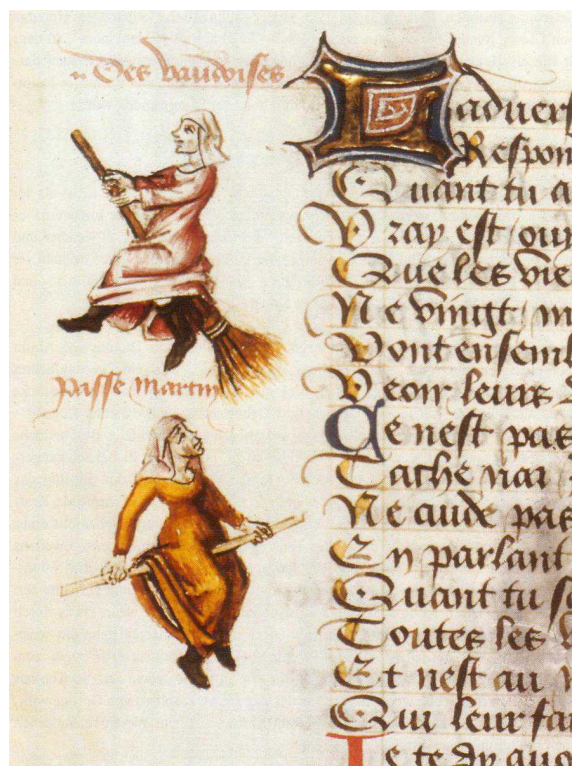 Des vaudoises
passe martin
Ladvers
Respon
Quant tu a
Vray est / ouy
Que les vie
Ne vingt / m
Vont ensembl
Veoir leurs
Ce nest pas
Tache par
Ne cuide pas
En parlant
Quant tu sc
Toutes les
Et nest au
Qui leur fa
Je te dy quo